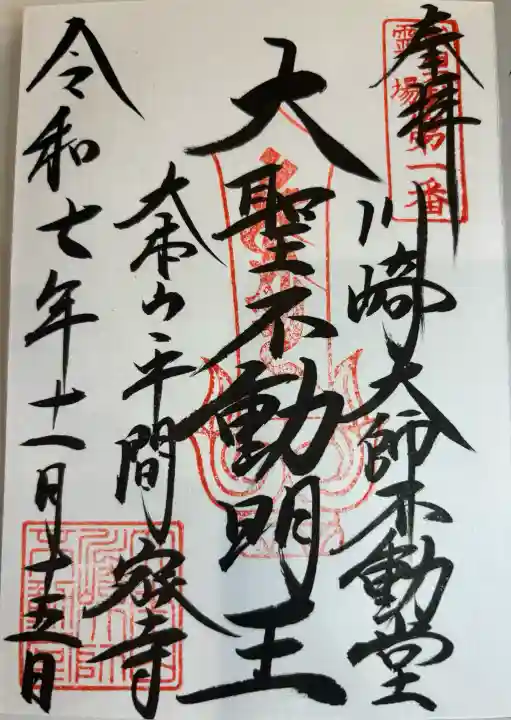 奉拝
霊場第一番
川崎大師不動堂
大聖不動明王
大本山平間寺
令和七年十一月十五日